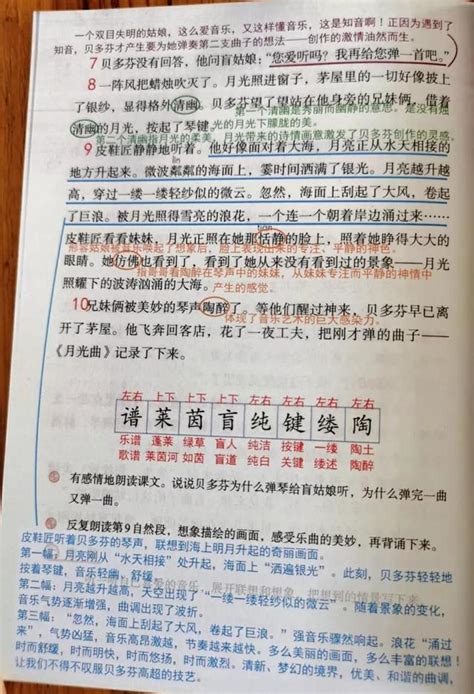 一个双目失明的姑娘，这么爱音乐，又这样懂音乐，这是知音啊！正因为遇到了
知音，贝多芬才产生要为她弹奏第二支曲子的想法——创作的激情油然而生。
7 贝多芬没有回答，他问盲姑娘：“您爱听吗？我再给您弹一首吧。”
8 一阵风把蜡烛吹灭了。月光照进窗子，茅屋里的一切好像披上
第一个清幽是秀丽而幽静的意思。是没有烛
了银纱，显得格外清幽。贝多芬望了望站在他身旁的兄妹俩，借着
光的月光下朦胧的美。
清幽的月光，按起了琴键。
第二个清幽指月光的柔美，月光带来的诗情画意激发了贝多芬创作的灵感。
9 皮鞋匠静静地听着。他好像面对着大海，月亮正从水天相接的
地方升起来。微波粼粼的海面上，霎时间洒满了银光。月亮越升越
高，穿过一缕一缕轻纱似的微云。忽然，海面上刮起了大风，卷起
了巨浪。被月光照得雪亮的浪花，一个连一个朝着岸边涌过来……
tián
皮鞋匠看看妹妹，月光正照在她那恬静的脸上，照着她睁得大大的
形容姑娘被音乐唤起了想象后，脸上表现出来的专注、平静的神色。
眼睛。她仿佛也看到了，看到了她从来没有看到过的景象——月光
指哥哥看着陶醉在琴声中的妹妹，从妹妹专注而平静的神情中
照耀下的波涛汹涌的大海。
产生的感觉。
10 兄妹俩被美妙的琴声陶醉了。等他们醒过神来，贝多芬早已离
体现了音乐艺术的巨大感染力。
开了茅屋。他飞奔回客店，花了一夜工夫，把刚才弹的曲子——
《月光曲》记录了下来。
左右 上下 上下 上下 左右 左右 左右 左右
谱 莱 茵 盲 纯 键 缕 陶
乐谱 蓬莱 绿草 盲人 纯洁 按键 一缕 陶土
歌谱 莱茵河 如茵 盲道 纯白 关键 缕述 陶醉
有感情地朗读课文。说说贝多芬为什么弹琴给盲姑娘听，为什么弹完一曲
又弹一曲。
反复朗读第9自然段，想象描绘的画面，感受乐曲的美妙，再背诵下来。
皮鞋匠听着贝多芬的琴声，联想到海上明月升起的奇丽画面。
第一幅：月亮刚从“水天相接”处升起，海面上“洒遍银光”。此刻，贝多芬轻轻地
按着琴键，音乐轻幽，舒缓
展开联想和想象，把想到的情景写下来。
第二幅：月亮越升越高，天空出现了“一缕一缕轻纱似的微云”。随着景象的变化，
音乐气势逐渐增强，曲调出现了波折。
第三幅：“忽然，海面上刮起了大风，卷起了巨浪。”强音乐骤然响起。浪花“涌过
来”，气势凶猛，音乐高昂激越，节奏越来越快。多么美丽的画面，多么丰富的联想！
时而舒缓，时而明快，时而悠扬，时而激烈，清新、梦幻的境界，优美、和谐的曲调，
让我们不得不叹服贝多芬高超的技艺。